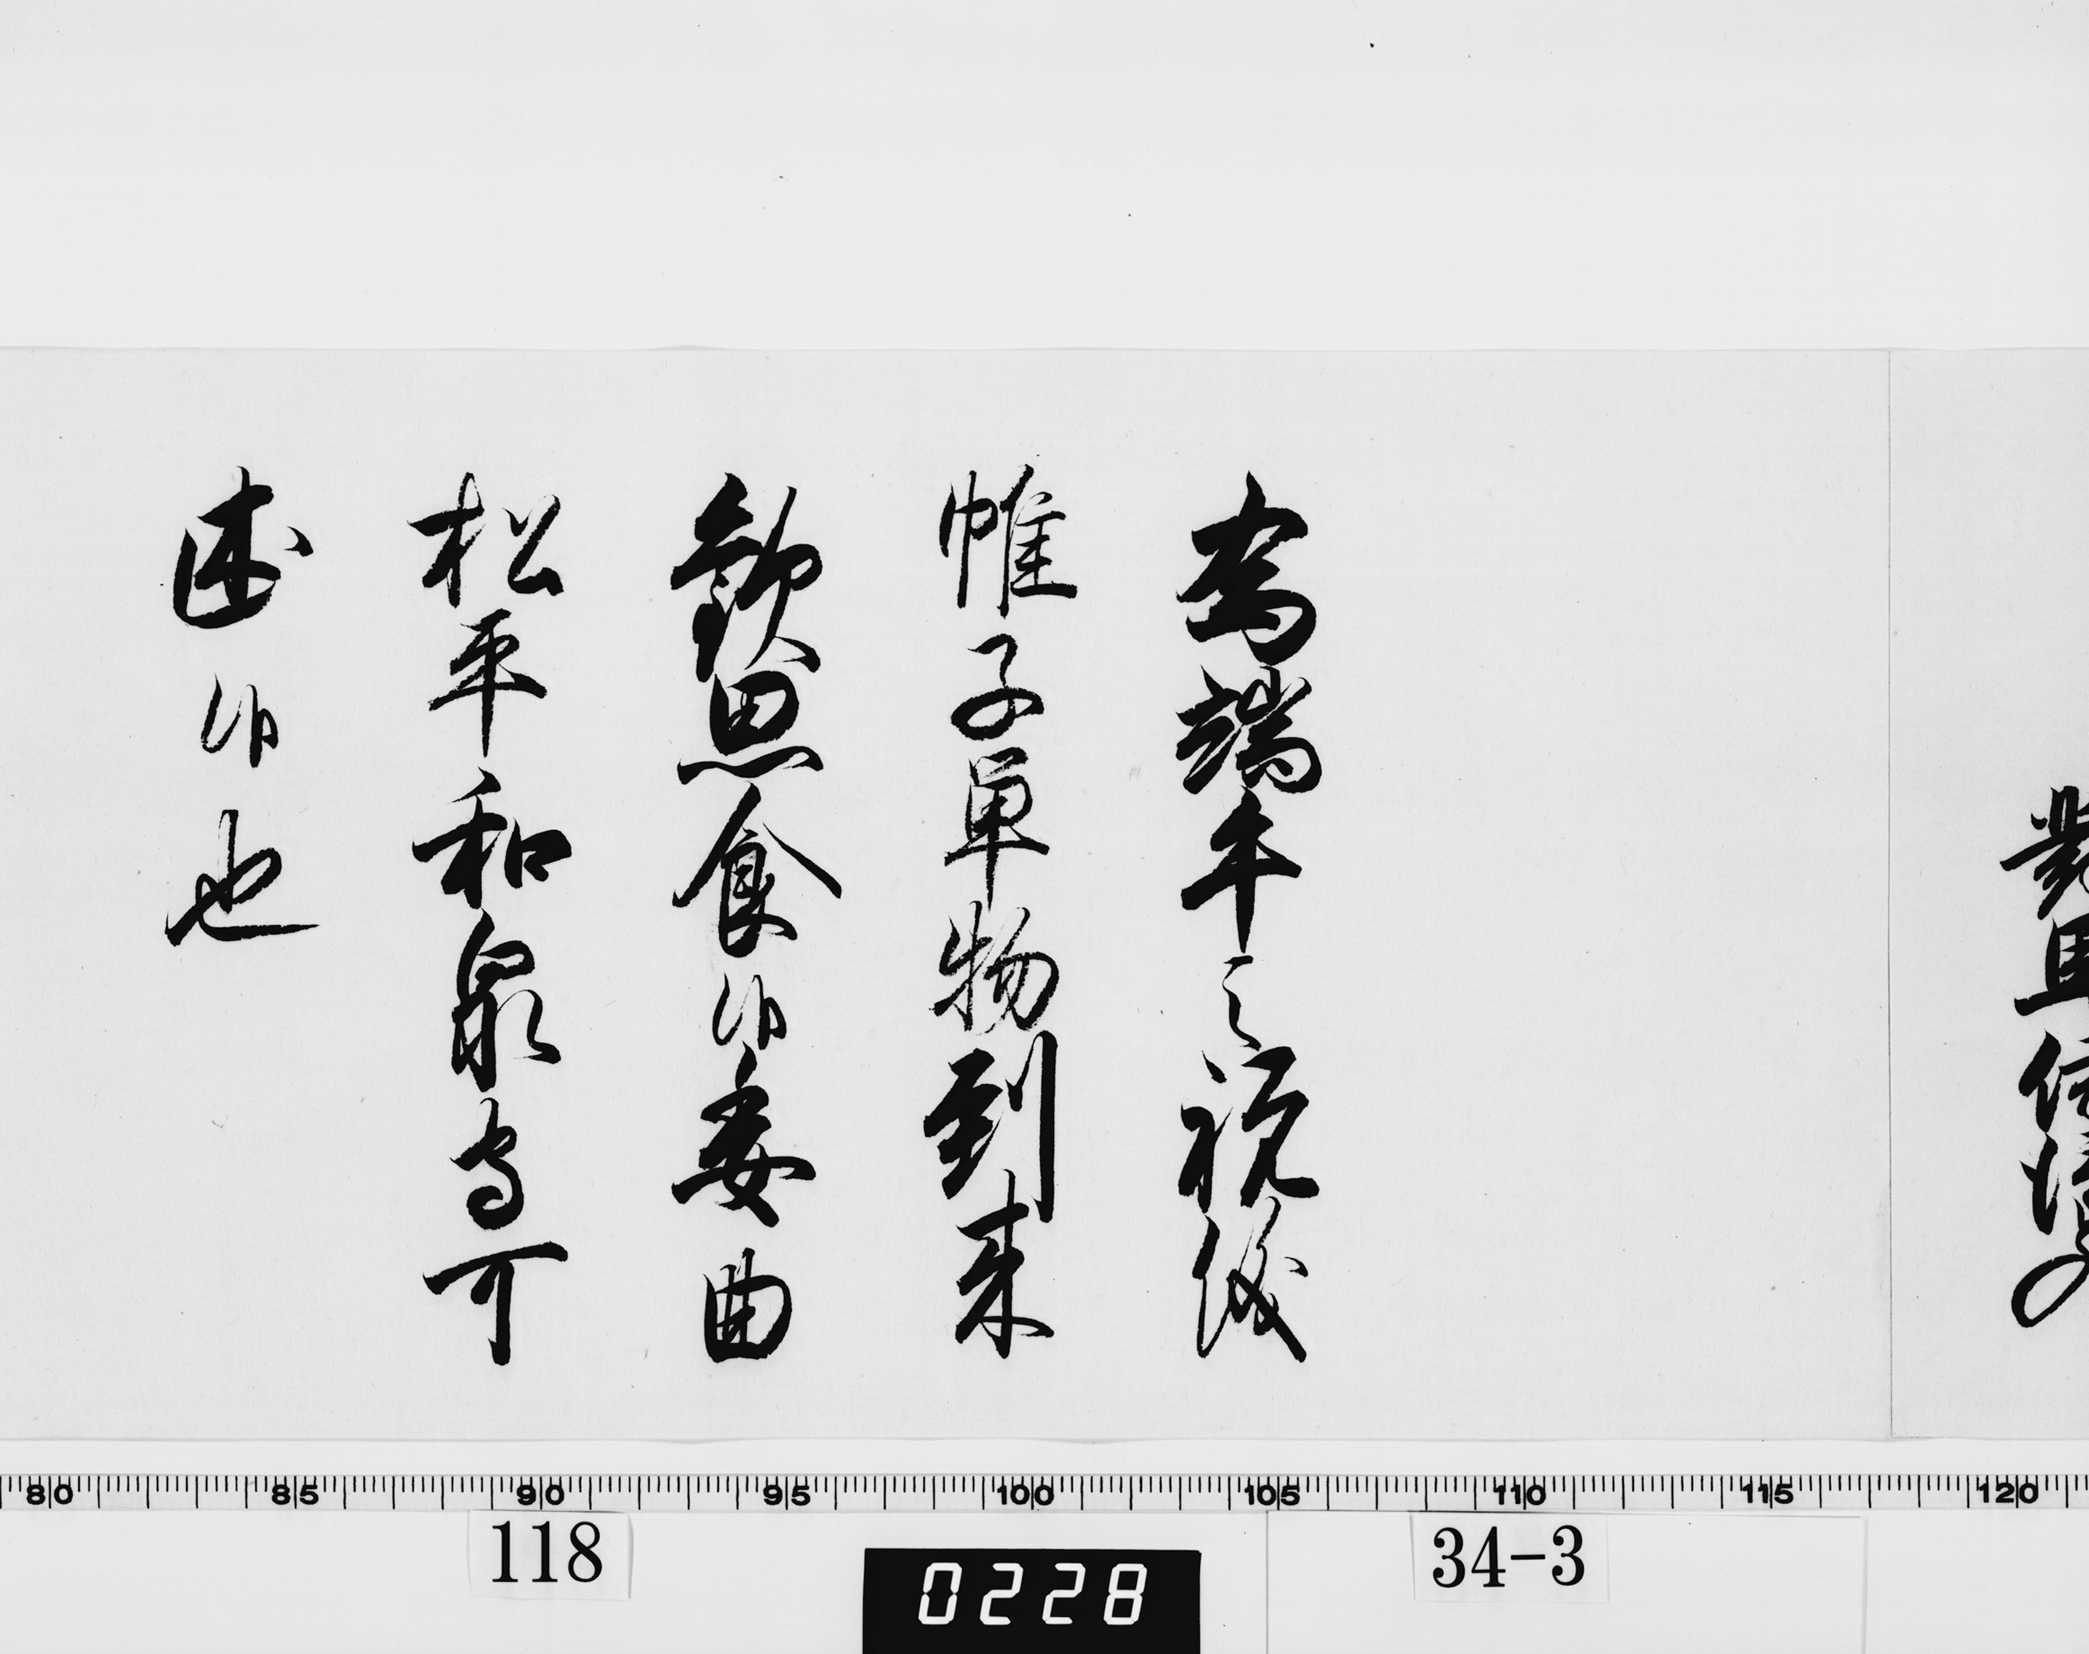 對馬侍従との
為端午之祝儀
帷子単物到来
歓思食候委曲
松平和泉守可
述候也
80 85 90 95 100 105 110 115 120
118
0228
34-3